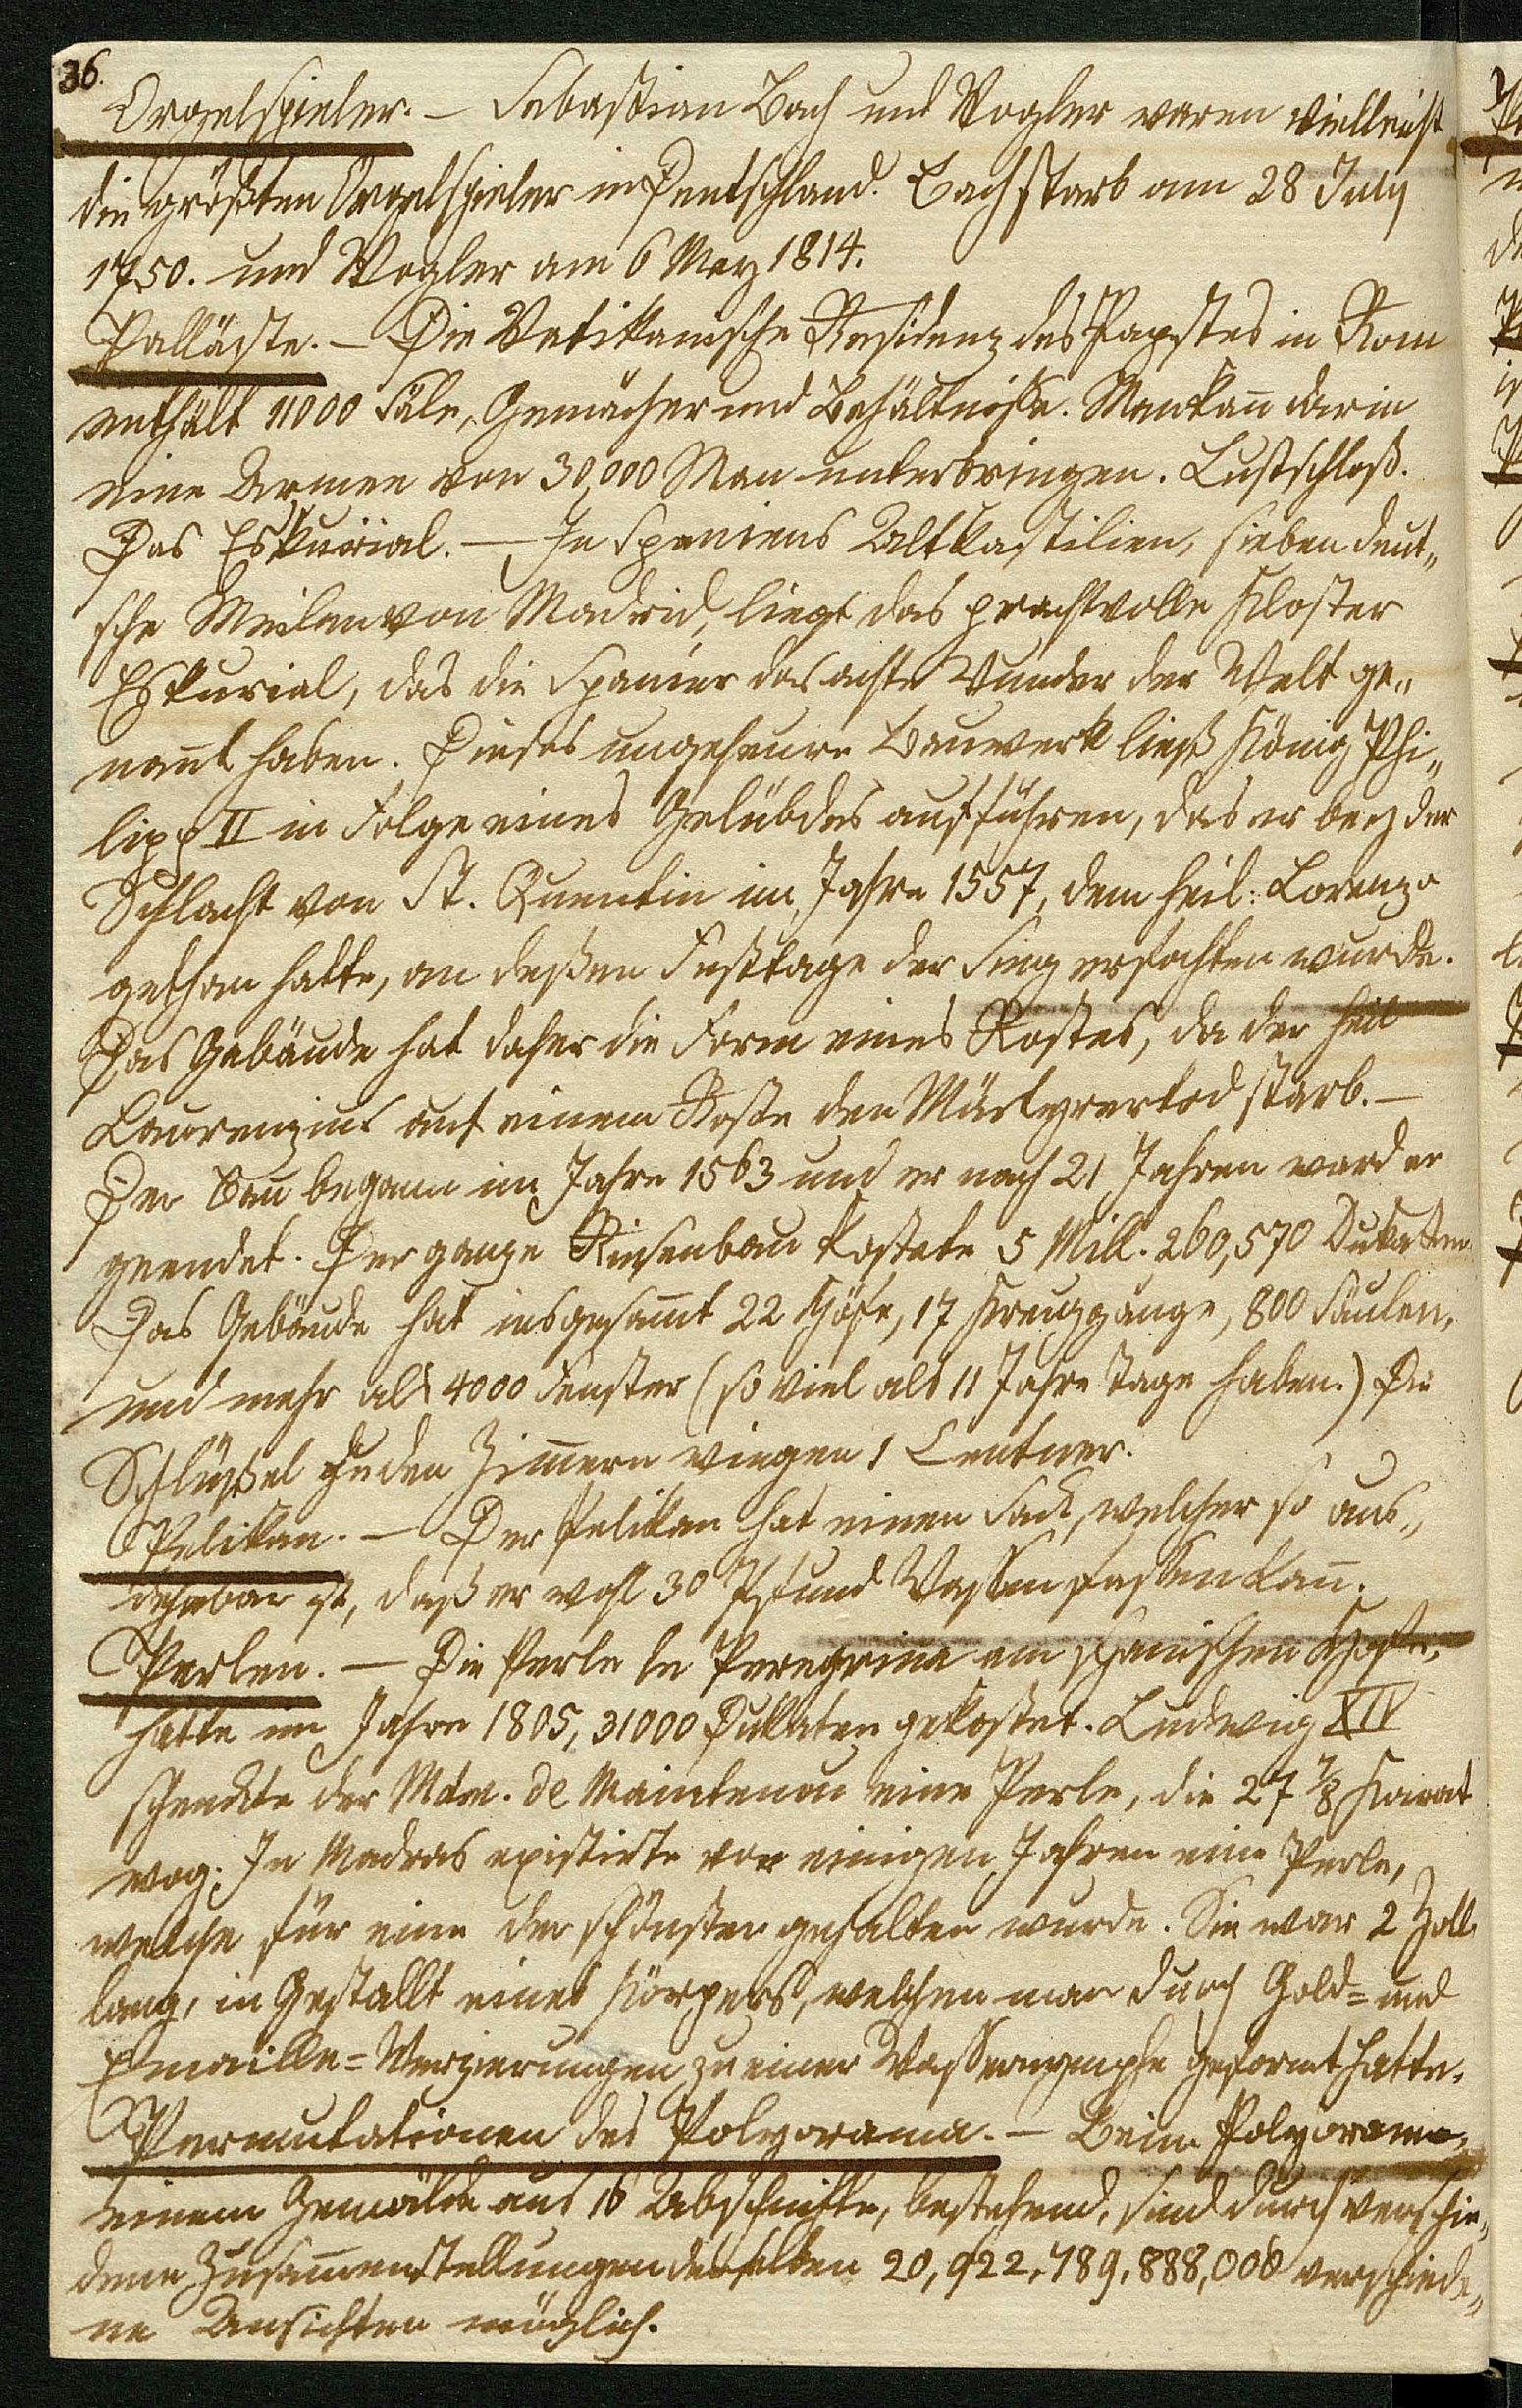 36.
Orgelspieler. — Sebastian Bach und Vogler waren vielleicht
die größten Orgelspieler in Deutschland. Bach starb am 28 July
1750. und Vogler am 6 May 1814.
Palläste. — Die Vatikanische Residenz des Papstes in Rom
enthält 11000 Säle, Gemächer und Behältnisse. Man kan̄ darin
eine Armee von 30,000 Man unterbringen. Lustschloß.
Das Eskurial. — In Spaniens Altkastilien, sieben deut„
sche Meilen von Madrid, liegt das prachtvolle Kloster
Eskurial, das die Spanier das achte Wunder der Welt ge„
nan̄t haben. Dieses ungeheure Bauwerk ließ König Phi„
lipp II in Folge eines Gelübdes aufführen, das er bey der
Schlacht von St. Quentin im Jahre 1557, dem heil: Lorenzo
gethan hatte, an deßen Festtage der Sieg erfochten wurde.
Das Gebäude hat daher die Form eines Rostes, da der heil
Laurenzius auf einem Roste den Märtyrertod starb. —
Der Bau begann im Jahre 1563 und er nach 21 Jahren ward er
geendet. Der ganze Riesenbau kostete 5 Mill. 260,570 Dukatten
Das Gebäude hat insgesam̄t 22 Höfe, 17 Kreuzgänge, 800 Säulen,
und mehr als 4000 Fenster (so viel als 11 Jahre Tage haben.) Die
Schlüßel zu den Zim̄ern wiegen 1 Centner.
Pelikan. — Der Pelikan hat einen Sack, welcher so aus„
dehnbar ist, daß er wohl 30 Pfund Wasser fassen kan̄.
Perlen. — Die Perle la Peregrina am spanischen Hofe,
hatte im Jahre 1805, 31000 Dukaten gekostet. Ludwig XIV
schenkte der Mdm. de Maintenon eine Perle, die 27 7/8 Karat
wog. In Madras existirte vor einigen Jahren eine Perle,
welche für eine der schönsten gehalten wurde. Sie war 2 Zoll
lang, in Gestallt eines Körpers, welchen man durch Gold= und
Emaille=Verzierungen zu einer Wassernymphe geformt hatte.
Permutationen des Polyorama. — Beim Polyorama,
einem Gemälde aus 16 Abschnitte, bestehend, sind durch verschie„
dene Zusam̄enstellungen derselben 20,922,789,888,000 verschiede„
ne Ansichten möglich.